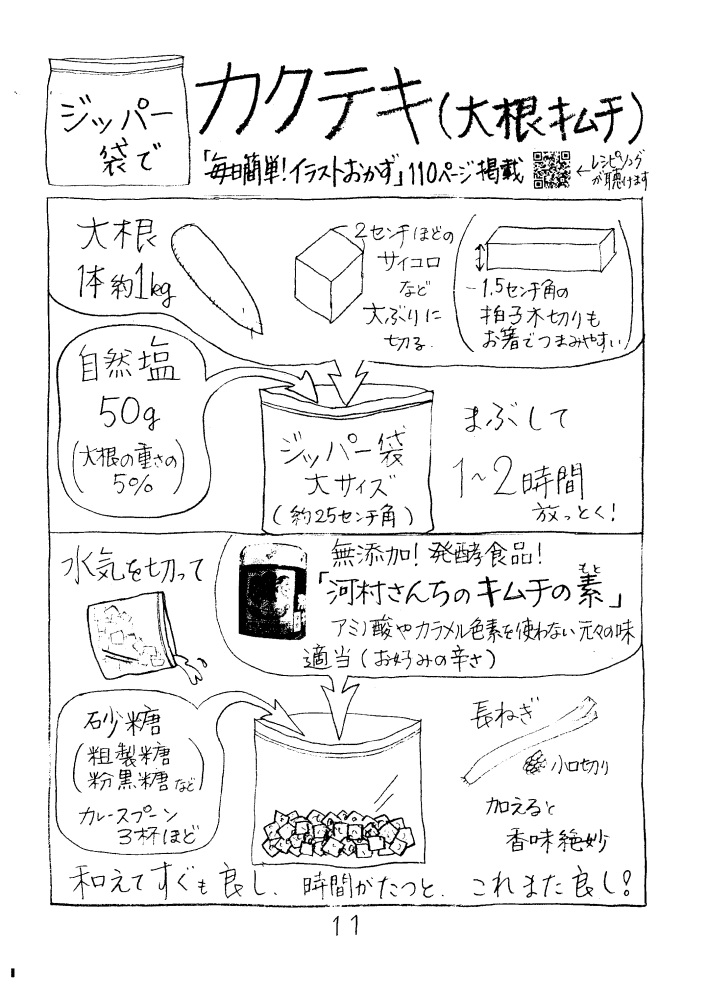 ジッパー
袋で
カクテキ(大根キムチ)
「毎日簡単!イラストおかず」110ページ掲載
←レシピソング
が聴けます
大根
1本約1kg
2センチほどの
サイコロ
など
大ぶりに
切る
1.5センチ角の
拍子木切りも
お箸でつまみやすい
自然塩
50g
(大根の重さの
5%)
ジッパー袋
大サイズ
(約25センチ角)
まぶして
1~2時間
放っとく!
水気を切って
無添加!発酵食品!
「河村さんちのキムチの素」
もと
アミノ酸やカラメル色素を使わない元々の味
適当(お好みの辛さ)
砂糖
(粗製糖
粉黒糖など)
カレースプーン
3杯ほど
長ねぎ
小口切り
加えると
香味絶妙
和えてすぐも良し、時間がたつと、これまた良し!
11